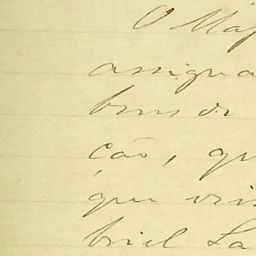 O Maj
assigna
bens de
ção, qu
que vin
briel La